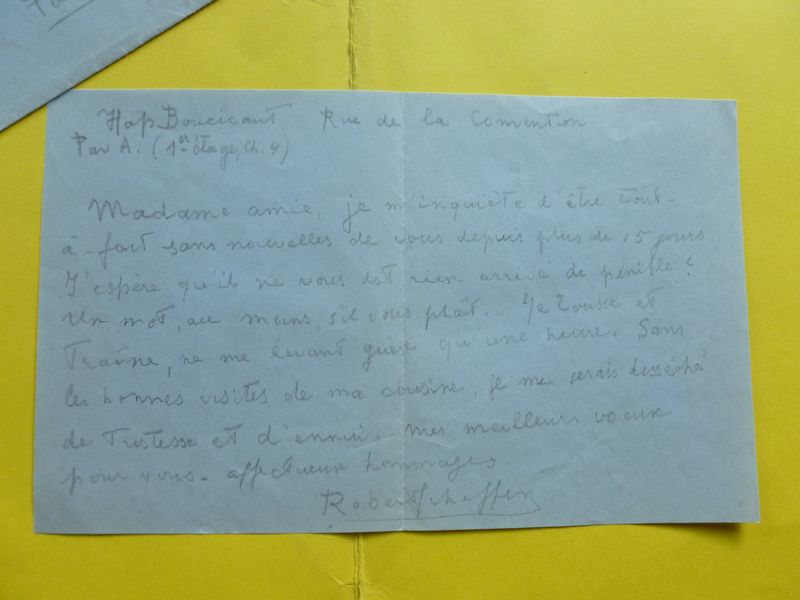 Hop Boucicaut Rue de la Convention
Pav A. (1er étage, Ch. 4)
Madame amie, je m'inquiète d'être tout-
à-fait sans nouvelles de vous depuis plus de 15 jours.
J'espère qu'il ne vous est rien arrivé de pénible?
Un mot, au moins, s'il vous plaît... Je tousse et
traîne, ne me levant guère qu'une heure. Sans
les bonnes visites de ma cousine, je me serais desséché
de tristesse et d'ennui. Mes meilleurs voeux
pour vous. affectueux hommages
Robert Scheffer